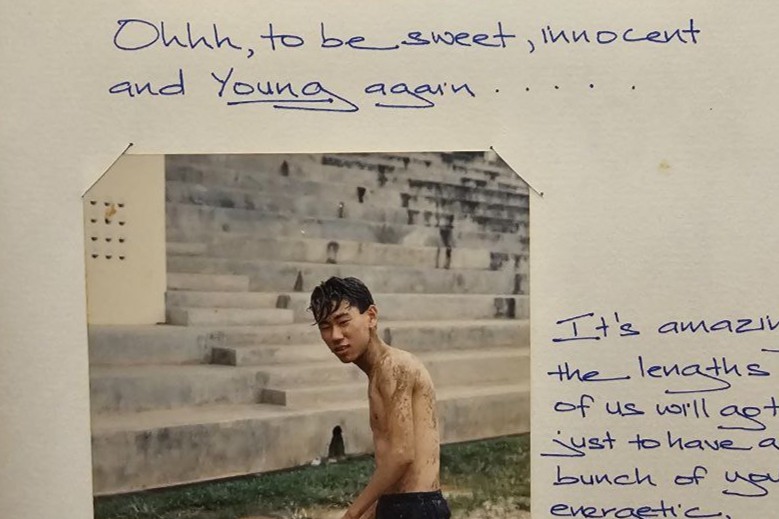 Ohhh, to be sweet, innocent
and Young again . . . . . .
It's amazin
the lengths
of us will
just to have a
bunch of you
energetic.